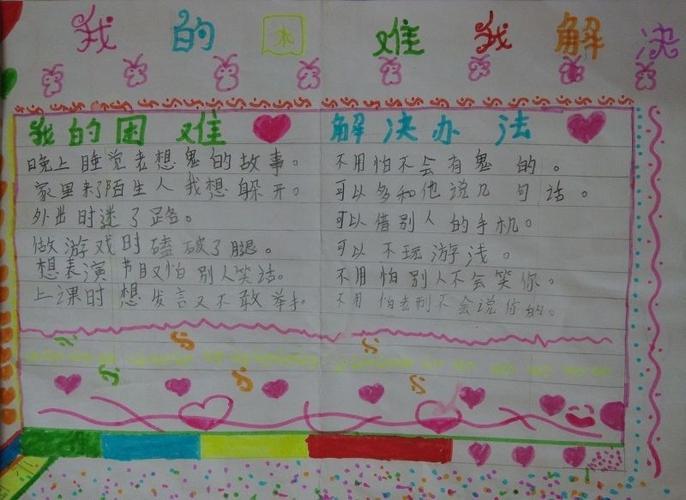 我的困难我解决
我的困难
晚上睡觉老想鬼的故事。
家里来陌生人我想躲开。
外出时迷了路。
做游戏时磕破了腿。
想表演节目又怕别人笑话。
上课时想发言又不敢举手。
解决办法
不用怕不会有鬼的。
可以多和他说几句话。
可以借别人的手机。
可以不玩游浅。
不用怕别人不会笑你。
不用怕老师不会说你的。